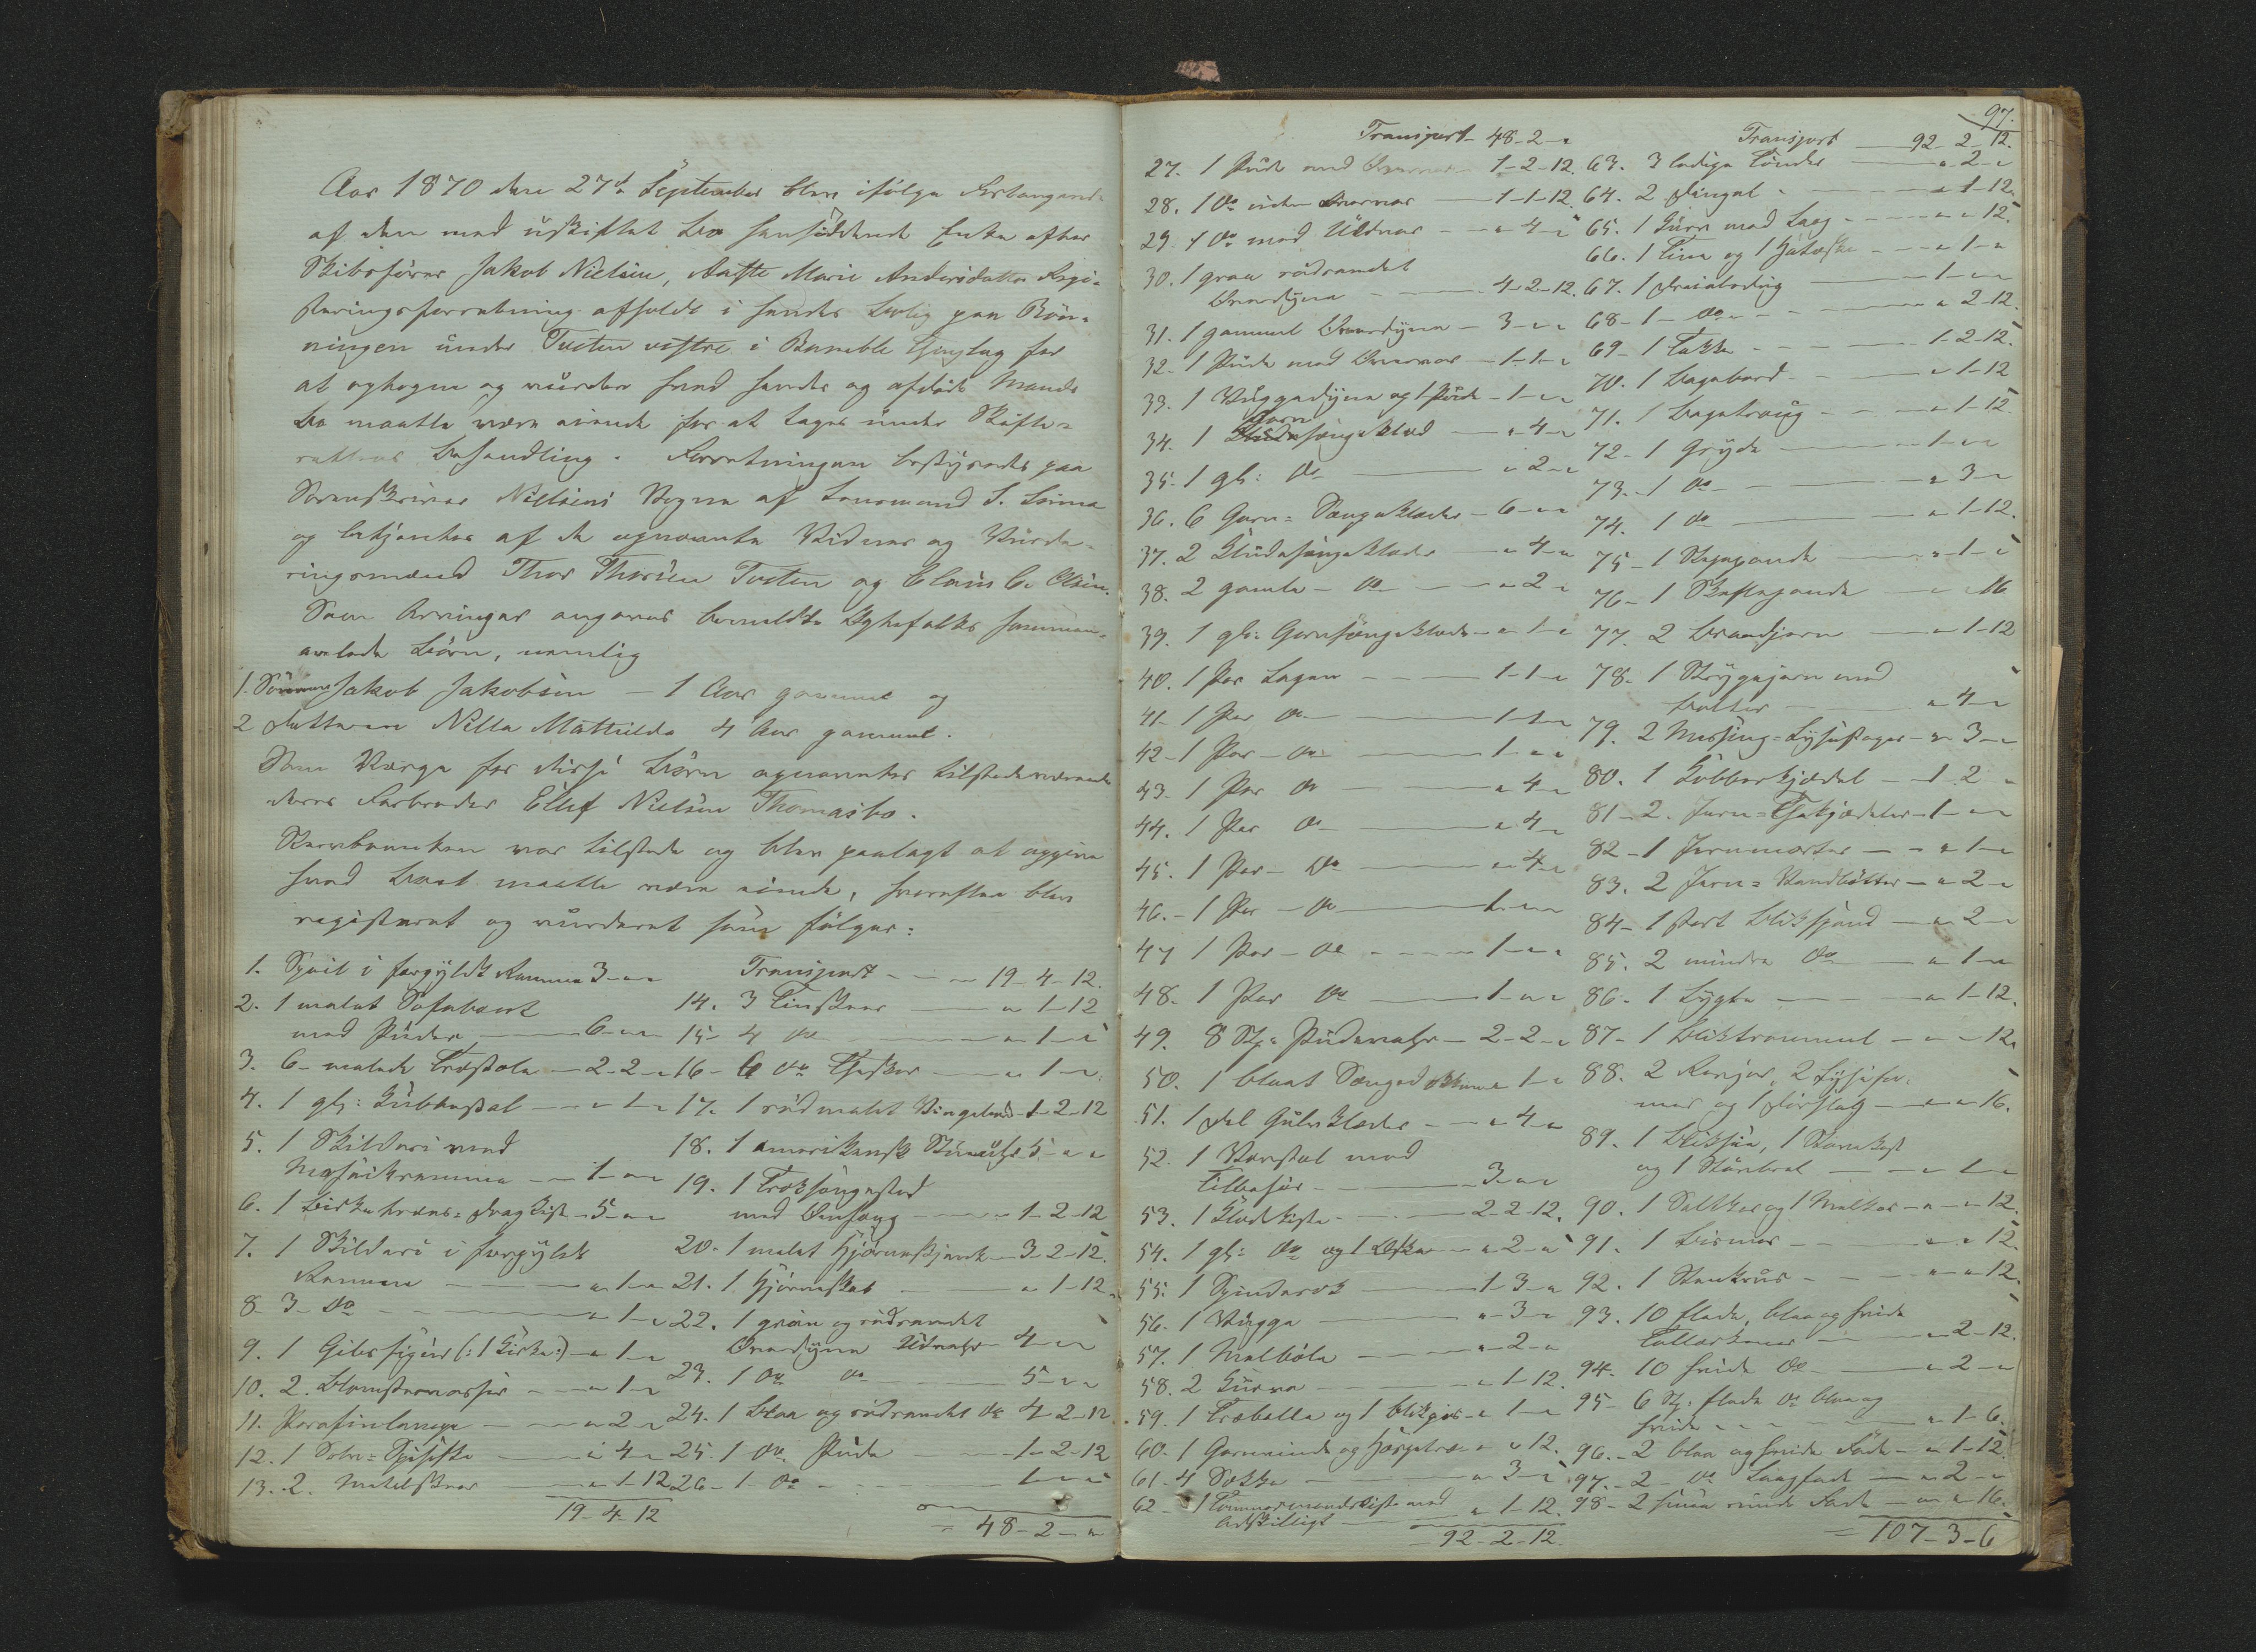 Aar 1870 den 27de September blev ifølge Forlangende
af den med uskiftet Bo hensiddende Enke efter
Skibsfører Jakob Nielsen, Aaste Marie Andersdatter Regi-
streringsforretning afholdt i hendes Bolig paa Røn-
ningen under Tveten vestre i Bamble Thinglag for
at optegne og vurdere hvad hendes og afdøde Mands
Bo maatte være eiende for at tages under Skifte-
rettens Behandling. Forretningen bestyredes paa
Sorenskriver Nielsens Vegne af Lensmand S.
og betjentes af de opnævnte Vidner og Vurde-
ringsmænd Thor Thorsen Tveten og Claus C. Olsen.
Som Arvinger angaves bemeldte Ægtefolks sammen-
avlede Børn, nemlig
1. Sønnen Jakob Jakobsen — 1 Aar gammel og
2 Datteren Nilla Mathilde 4 Aar gammel.
Som Værge for disse Børn opnævntes tilstedeværende
deres Farbroder Ellef Nielsen Thomasbo.
Stervboenken var tilstede og blev paalagt at opgive
hvad Boet maatte være eiende, hvorefter blev
registreret og vurderet som følger:
1. Speil i forgyldt Ramme 3 - " - "
2. 1 malet Sofabænk
med Puder — 6 - " - "
3. 6 malede Træstole — 2 - 2 - "
4. 1 gl: Kubbestol — " - 1 - "
5. 1 Skilderi med
Mosaikramme — 1 - " - "
6. 1 Birketræs-Dragkiste — 5 - " - "
7. 1 Skilderi i forgyldt
Ramme — " - 1 - "
8. 3 do — " - 1 - "
9. 1 Gibsfigur (: 1 Kirke :) — " - 1 - "
10. 2. Blomstervasser — " - 1 - "
11. Parafinlampe — " - 2 - "
12. 1 Sølv-Spiseske — " - 4 - "
13. 2. Metalskeer — " - 1 - 12
19 - 4 - 12
Transport — 19 - 4 - 12.
14. 3 Tinskeer — " - 1 - 12
15. 4 do — " - 1 - "
16. 6 do Theskeer — " - 1 - "
17. 1 rødmalet Vingebord 1 - 2 - 12
18. 1 amerikansk Stueuhr 5 - " - "
19. 1 Træksengested
med Omhæng — 1 - 2 - 12
20. 1 malet Hjørneskjænk — 3 - 2 - 12.
21. 1 Hjørneskab — " - 1 - 12.
22. 1 grøn og rødrandet
Overdyne Uldvahr 4 - " - "
23. 1 do do — 5 - " - "
24. 1 blaa og rødrandet do 4 - 2 - 12.
25. 1 do Pude — 1 - 2 - 12
26. 1 do — 1 - " - "
= 48 - 2 - "
97.
Transport — 48 - 2 - "
27. 1 Pude med — 1 - 2 - 12.
28. 1 do uden — 1 - 1 - 12.
29. 1 do med Uldvar — " - 4 - "
30. 1 graa rødrandet
Overdyne — 4 - 2 - 12.
31. 1 gammel Overdyne — 3 - " - "
32. 1 Pude med — 1 - 1 - "
33. 1 Vuggedyne og 1 Pude — 1 - " - "
34. 1 Garn sengeklæd — " - 4 - "
35. 1 gl: do — " - 2 - "
36. 6 Garn-Sengeklæder — 6 - " - "
37. 2 Kludesengeklæder — " - 4 - "
38. 2 gamle do — " - 2 - "
39. 1 gl: Garnsengeklæde — " - 1 - "
40. 1 Par Lagen — 1 - 1 - "
41. 1 Par do — 1 - 1 - "
42. 1 Par do — 1 - " - "
43. 1 Par do — " - 4 - "
44. 1 Par do — " - 4 - "
45. 1 Par do — " - 4 - "
46. 1 Par do — 1 - " - "
47. 1 Par do — 1 - " - "
48. 1 Par do — 1 - " - "
49. 8 St: Pudevahr — 2 - 2 - "
50. 1 blaat Sengedækken " 1 - "
51. 1 Del Gulvklæder — " - 4 - "
52. 1 Vævstol med
Tilbehør — 3 - " - "
53. 1 Klædkiste — 2 - 2 - 12.
54. 1 gl: do og 1 Æske — " - 2 - "
55. 1 Spinderok — 1 - 3 - "
56. 1 Vugge — " - 3 - "
57. 1 Malbøle — " - 2 - "
58. 2 Kurve — " - 1 - 12.
59. 1 Træballe og 1 — " - 1 - "
60. 1 Garnvinde og Hespetræ — " - " 12.
61. 4 Sække — " - 3 - "
62. 1 Tømmermandskiste med
Adskilligt — " - 1 - 12.
92 - 2 - 12.
Transport — 92 - 2 - 12.
63. 3 ledige Tønder — " - 2 - "
64. 2 — " - 1 - 12.
65. 1 Kurv med Laag — " - " 12.
66. 1 Tine og 1 — " - 1 - "
67. 1 — 1 - " - "
68. 1 do — " - 2 - 12.
69. 1 Takke — 1 - 2 - 12.
70. 1 Bagebord — " - 1 - 12
71. 1 Bagetraug — " - 1 - 12.
72. 1 Gryde — 1 - " - "
73. 1 do — " - 3 - "
74. 1 do — " - 1 - 12.
75. 1 Stegepande — " - 1 - "
76. 1 Skaftepande — " - " 16
77. 2 Brandjern — " - 1 - 12
78. 1 Strygejern med
Bolter — " - 4 - "
79. 2 Messing-Lysestager — " - 3 - "
80. 1 Kobberkjedel — 1 - 2 - "
81. 2. Jern-Thekjedeler — 1 - " - "
82. 1 Jernmorter — " - 1 - "
83. 2 Jern-Vandbøtter — " - 2 - "
84. 1 stort Blikspand — " - 2 - "
85. 2 mindre do — " - 1 - "
86. 1 Lygte — " - 1 - 12.
87. 1 Bliktrommel — " - " 12.
88. 2 Rivjer, 2 Lysefor-
mer og 1 Dørslag — " - " 16.
89. 1
og 1 — " - 1 - "
90. 1 Saltkar og 1 Melkar — " - " 12.
91. 1 Bismer — " - " 12.
92. 1 Stenkrus — " - " 12.
93. 10 flade, blaa og hvide
Tallerkener — " - 2 - 12.
94. 10 hvide do — " - 2 - "
95. 6 St: flade do blaa og
hvide — " - 1 - 6.
96. 2 blaa og hvide Fade — " - 1 - 12.
97. 2 do Laagfade — " - 2 - "
98. 2 smaa runde Fade — " - " 16.
= 107 - 3 - 6